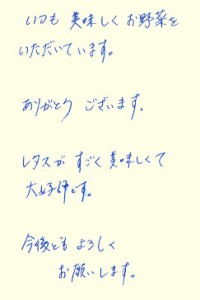 いつも 美味しく お野菜を
いただいています。
ありがとう ございます。
レタスが すごく 美味しくて
大好きです。
今後とも よろしく
お願いします。